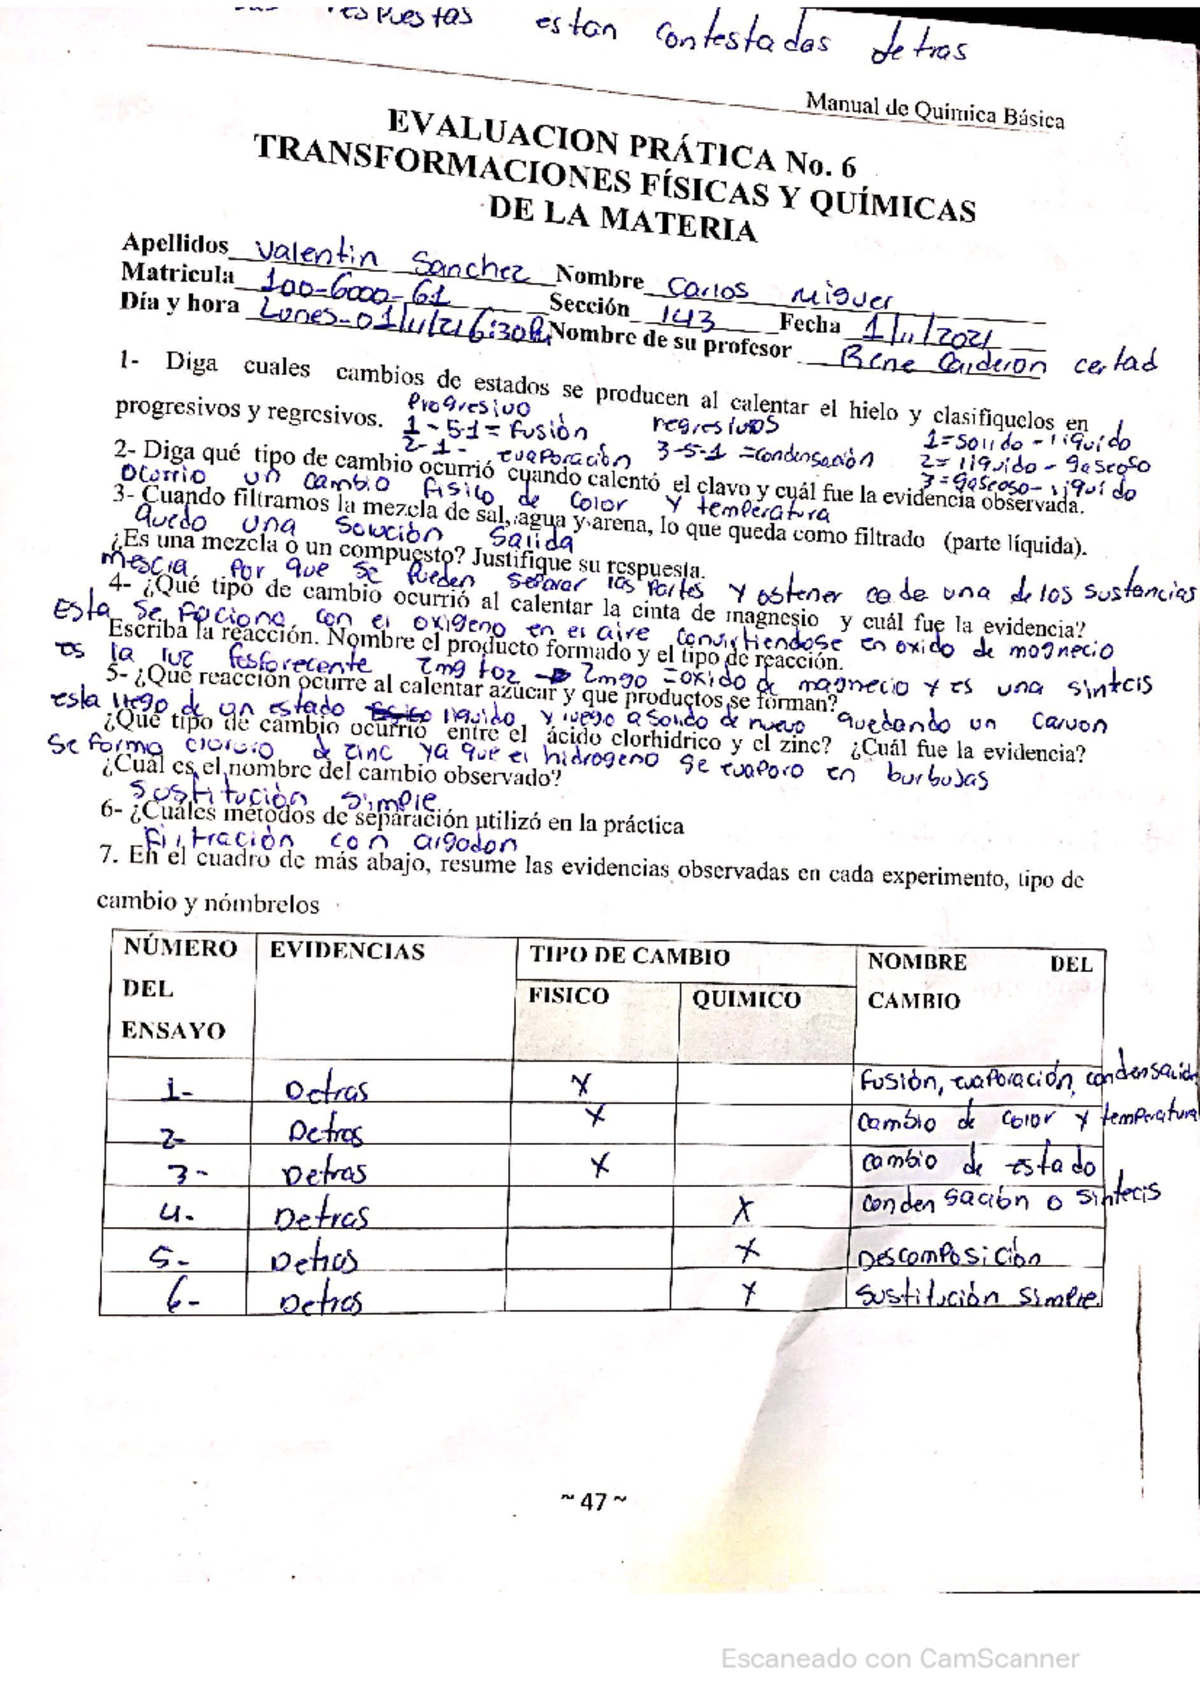 respuestas estan contestadas detras
Manual de Química Básica
EVALUACION PRÁTICA No. 6
TRANSFORMACIONES FÍSICAS Y QUÍMICAS
DE LA MATERIA
Apellidos Valentin Sanchez Nombre Carlos Miguel
Matricula 100-6000-61 Sección 143 Fecha 1/11/2021
Día y hora Lunes-01/11/21 6:30 Nombre de su profesor Rene Calderon certad
1- Diga cuales cambios de estados se producen al calentar el hielo y clasifiquelos en
progresivos y regresivos. Progresivo regresivos
1-S-1=fusión 1=Solido-liquido
2-1- evaporación 3-S-1=Condensación 2=liquido-gaseoso
2- Diga qué tipo de cambio ocurrió cuando calentó el clavo y cuál fue la evidencia observada. 3=gaseoso-liquido
Ocurrio un cambio fisico de color y temperatura
3- Cuando filtramos la mezcla de sal, agua y arena, lo que queda como filtrado (parte líquida).
quedo una solución salida
¿Es una mezcla o un compuesto? Justifique su respuesta.
mescla por que se pueden separar las partes y ostener cada una de los sustancias
4- ¿Qué tipo de cambio ocurrió al calentar la cinta de magnesio y cuál fue la evidencia?
Esta se faciona con el oxigeno en el aire convirtiendose en oxido de magnecio
Escriba la reacción. Nombre el producto formado y el tipo de reacción.
es la luz fosforecente 2mg+o2 → 2mgo =oxido de magnecio y es una sintcis
5- ¿Qué reacción ocurre al calentar azúcar y que productos se forman?
esta llego de un estado liquido y luego a solido de nuevo quedando un carvon
¿Qué tipo de cambio ocurrió entre el ácido clorhidrico y el zinc? ¿Cuál fue la evidencia?
Se forma cloruro de zinc ya que el hidrogeno se evaporo en burbujas
¿Cuál es el nombre del cambio observado?
Sustitución simple
6- ¿Cuáles métodos de separación utilizó en la práctica
Filtración con algodon
7. En el cuadro de más abajo, resume las evidencias observadas en cada experimento, tipo de
cambio y nómbrelos
NÚMERO DEL ENSAYO EVIDENCIAS TIPO DE CAMBIO NOMBRE DEL CAMBIO
FISICO QUIMICO
1- Detras X fusión, evaporación, condensación
2- Detras X cambio de color y temperatura
3- Detras X cambio de estado
4- Detras X condensación o sintecis
5- Detras X Descomposición
6- Detras X sustitución simple
~ 47 ~
Escaneado con CamScanner